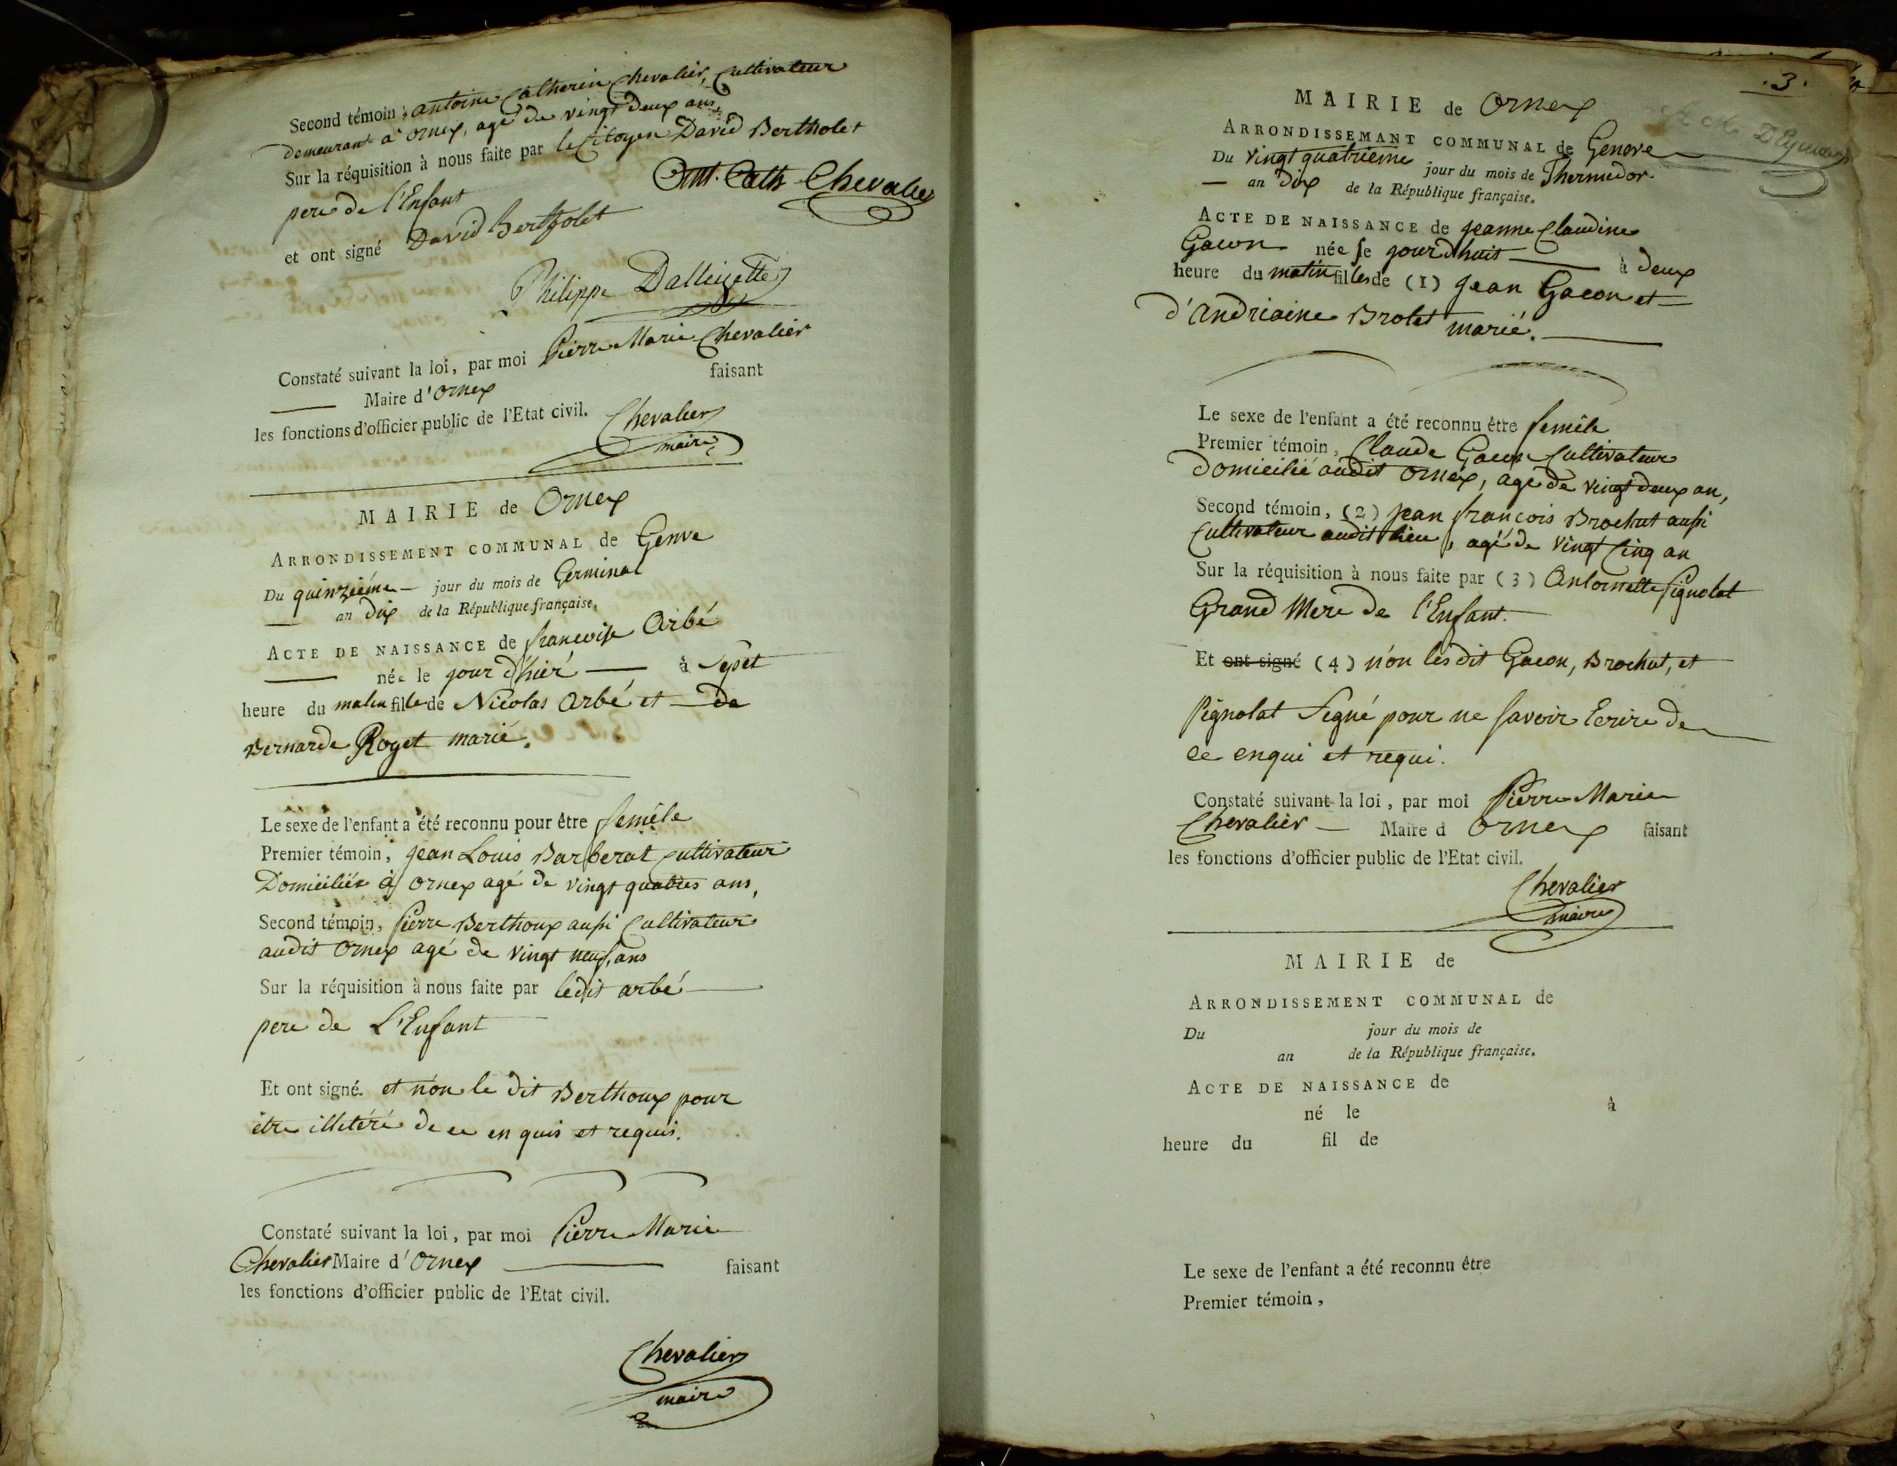 Second témoin ; antoine Catherin Chevalier, Cultivateur
demeurant à ornex, agé de vingt deux ans,
Sur la réquisition à nous faite par le Citoyen David Bertholet
pere de l'Enfant
Ant. Cath Chevalier
et ont signé David Bertholet
Philippe
Constaté suivant la loi, par moi Pierre Marie Chevalier
Maire d'Ornex faisant
les fonctions d'officier public de l'Etat civil.
Chevalier
maire
MAIRIE de Ornex
ARRONDISSEMENT COMMUNAL de Genve
Du quinzième jour du mois de Germinal
an dix de la République française.
ACTE DE NAISSANCE de francoise Arbé
née le jour d'hier à sept
heure du matin fille de Nicolas Arbé et de
Bernarde Roget marié.
Le sexe de l'enfant a été reconnu pour être femêle
Premier témoin, jean Louis Barberat Cultivateur
Domicilié à ornex agé de vingt quatres ans,
Second témoin, Pierre Berthoux aussi Cultivateur
audit Ornex agé de vingt neuf, ans
Sur la réquisition à nous faite par ledit arbé
pere de L'Enfant
Et ont signé. et non le dit Berthoux pour
être illitéré de ce en quis et requis.
Constaté suivant la loi, par moi Pierre Marie
Chevalier Maire d'Ornex faisant
les fonctions d'officier public de l'Etat civil.
Chevalier
maire
.3.
MAIRIE de Ornex
ARRONDISSEMANT COMMUNAL de Geneve
Du vingt quatrieme jour du mois de Thermidor
an Dix de la République française.
ACTE DE NAISSANCE de jeanne Claudine
Gacon née le jourdhuit à deux
heure du matin filles de (1) jean Gacon et
d'Andriaine Brolet marié.
Le sexe de l'enfant a été reconnu être femêle
Premier témoin, Claude Gacon Cultivateur
Domicilié audit Ornex, agé de vingt deux an,
Second témoin, (2) jean françois Brochut aussi
Cultivateur audit lieu, agé de vingt Cinq an
Sur la réquisition à nous faite par (3) Antoinette Pignolat
Grand Mere de l'Enfant.
Et ont signé (4) n'on lesdit Gacon, Brochut, et
Pignolat Signé pour ne savoir Ecrire de
ce enqui et requi.
Constaté suivant la loi, par moi Pierre Marie
Chevalier Maire d Ornex faisant
les fonctions d'officier public de l'Etat civil.
Chevalier
maire
MAIRIE de
ARRONDISSEMENT COMMUNAL de
Du jour du mois de
an de la République française.
ACTE DE NAISSANCE de
né le à
heure du fil de
Le sexe de l'enfant a été reconnu être
Premier témoin,